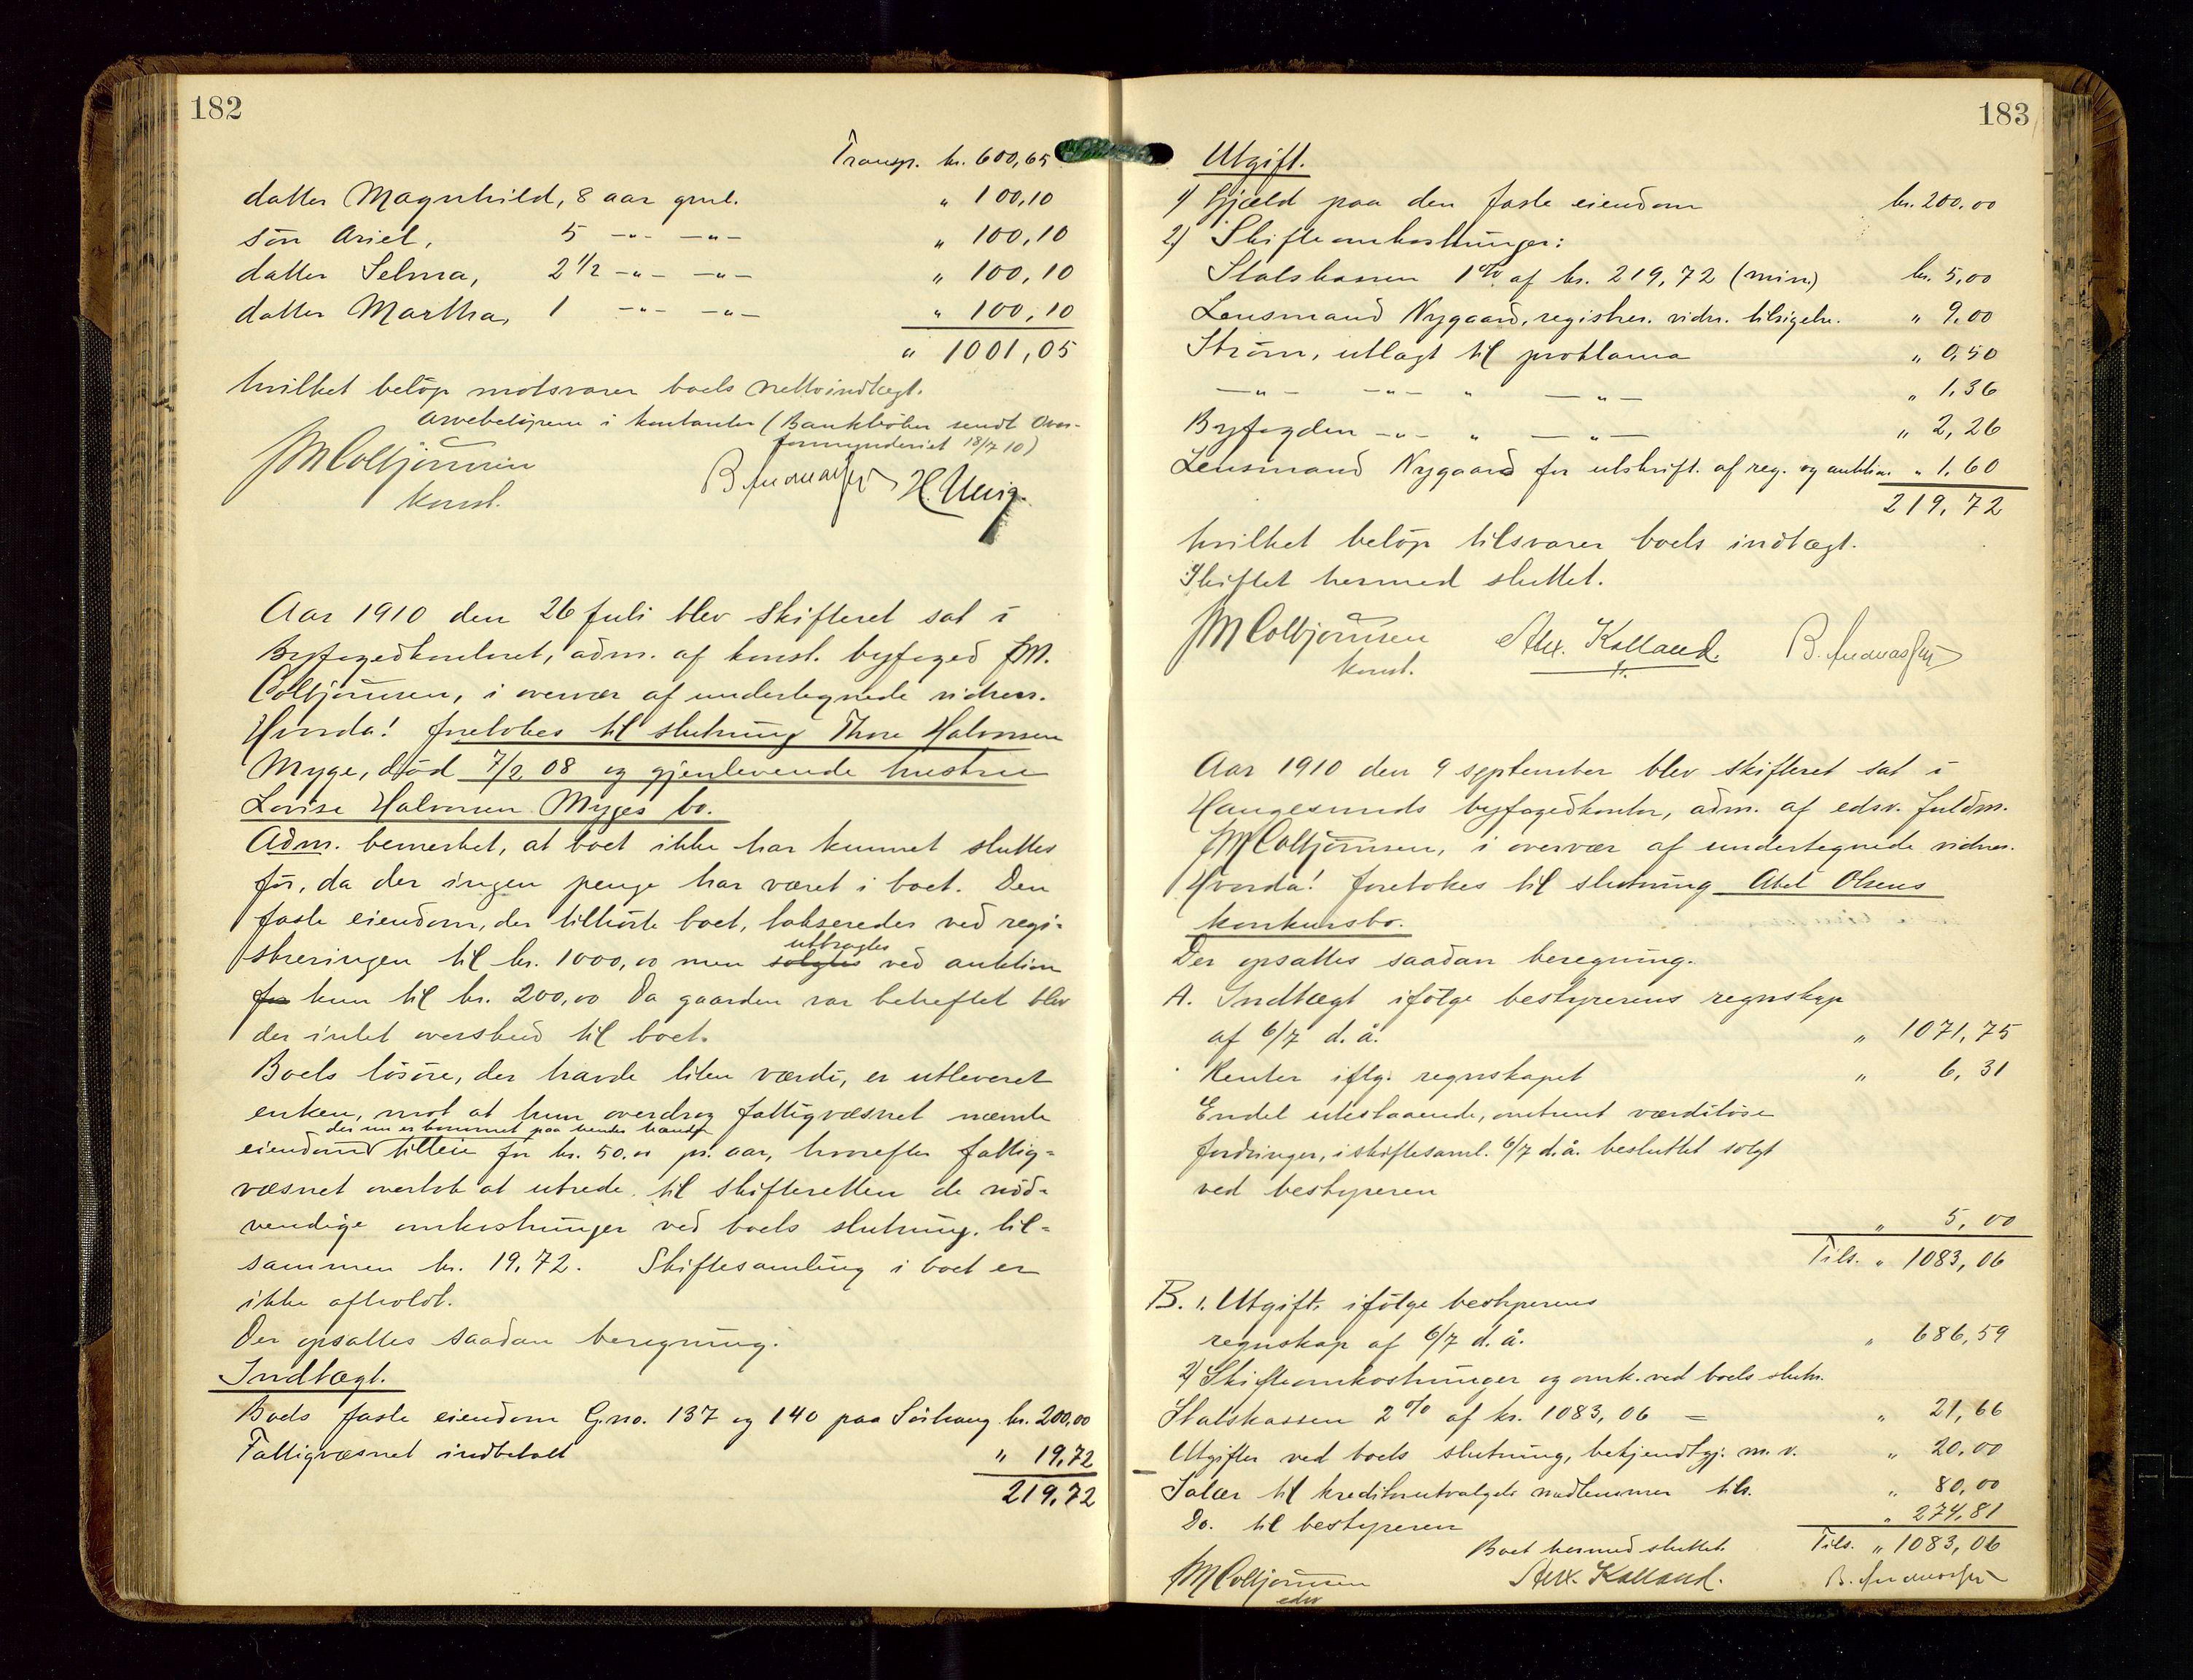 182
Transp. kr. 600,65
datter Magnhild, 8 aar gml. " 100,10
søn Ariel, 5 -"- -"- " 100,10
datter Selma, 2 1/2 -"- -"- " 100,10
datter Martha, 1 -"- -"- " 100,10
" 1001,05
hvilket beløp motsvarer boets nettoindtægt.
Arvebeløpene i kontanter (Bankbøker sendt Over-
formynderiet 18/7 10)
JM Colbjørnsen
konst.
B. Andreassen H.
Aar 1910 den 26 juli blev skifteret sat i
Byfogedkontoret, adm. af konst. byfoged JM.
Colbjørnsen, i overvær af undertegnede vidner.
Hvorda! foretokes til slutning Thore Halvorsen
Myge, død 7/2 08 og gjenlevende hustru
Lovise Halvorsen Myges bo.
Adm. bemerket, at boet ikke har kunnet sluttes
før, da der ingen penge har været i boet. Den
faste eiendom, der tilhørte boet, takseredes ved regi-
streringen til kr. 1000,00 men solgtes utbragtes ved auktion
for kun til kr. 200,00 Da gaarden var beheftet blev
der intet overskud til boet.
Boets løsøre, der havde liten værdi, er utleveret
enken, mot at hun overdrog fattigvæsnet nævnte
der nu er kommet paa hendes hænder
eiendom til leie for kr. 50.00 pr. aar, hvorefter fattig-
væsnet overtok at utrede til skifteretten de nød-
vendige omkostninger ved boets slutning, til-
sammen kr. 19,72. Skiftesamling i boet er
ikke afholdt.
Der opsattes saadan beregning:
Indtægt.
Boets faste eiendom G.no. 137 og 140 paa Sørhaug kr. 200,00
Fattigvæsnet indbetalt " 19,72
219,72
183
Utgift.
1) Gjæld paa den faste eiendom kr. 200,00
2) Skifteomkostninger:
Statskassen 1% af kr. 219,72 (min.) kr. 5,00
Lensmand Nygaard, registrer. vidn. tilsigelse. " 9,00
Strøm, utlagt til proklama " 0,50
-"- -"- " -"- " 1,36
Byfogden -"- " -"- " 2,26
Lensmand Nygaard for utskrift. af reg. og auktion " 1,60
219,72
hvilket beløp tilsvarer boets indtægt.
Skiftet hermed sluttet.
JM Colbjørnsen
konst.
Alex. Kolland. B. Andreassen
Aar 1910 den 9 september blev skifteret sat i
Haugesunds byfogedkontor, adm. af edsv. fuldm.
JM Colbjørnsen, i overvær af undertegnede vidner.
Hvorda! foretokes til slutning Abel Olsens
konkursbo.
Der opsattes saadan beregning.
A. Indtægt ifølge bestyrerens regnskap
af 6/7 d. å. " 1071,75
Renter iflg. regnskapet " 6,31
Endel utestaaende, omtrent værdiløse
fordringer, i skiftesaml. 6/7 d.å. besluttet solgt
ved bestyreren
" 5,00
Tils. " 1083,06
B. 1. Utgift, ifølge bestyrerens
regnskap af 6/7 d. å. " 686,59
2) Skifteomkostninger og omk. ved boets slutn.
Statskassen 2% af kr. 1083,06 = " 21,66
Utgifter ved boets slutning, bekjendtgj. m. v. " 20,00
Salær til kreditorutvalgets medlemmer tils. " 80,00
Do. til bestyreren " 274,81
Boet hermed sluttet. Tils. " 1083,06
JM Colbjørnsen
edsv
Alex. Kolland. B. Andreassen